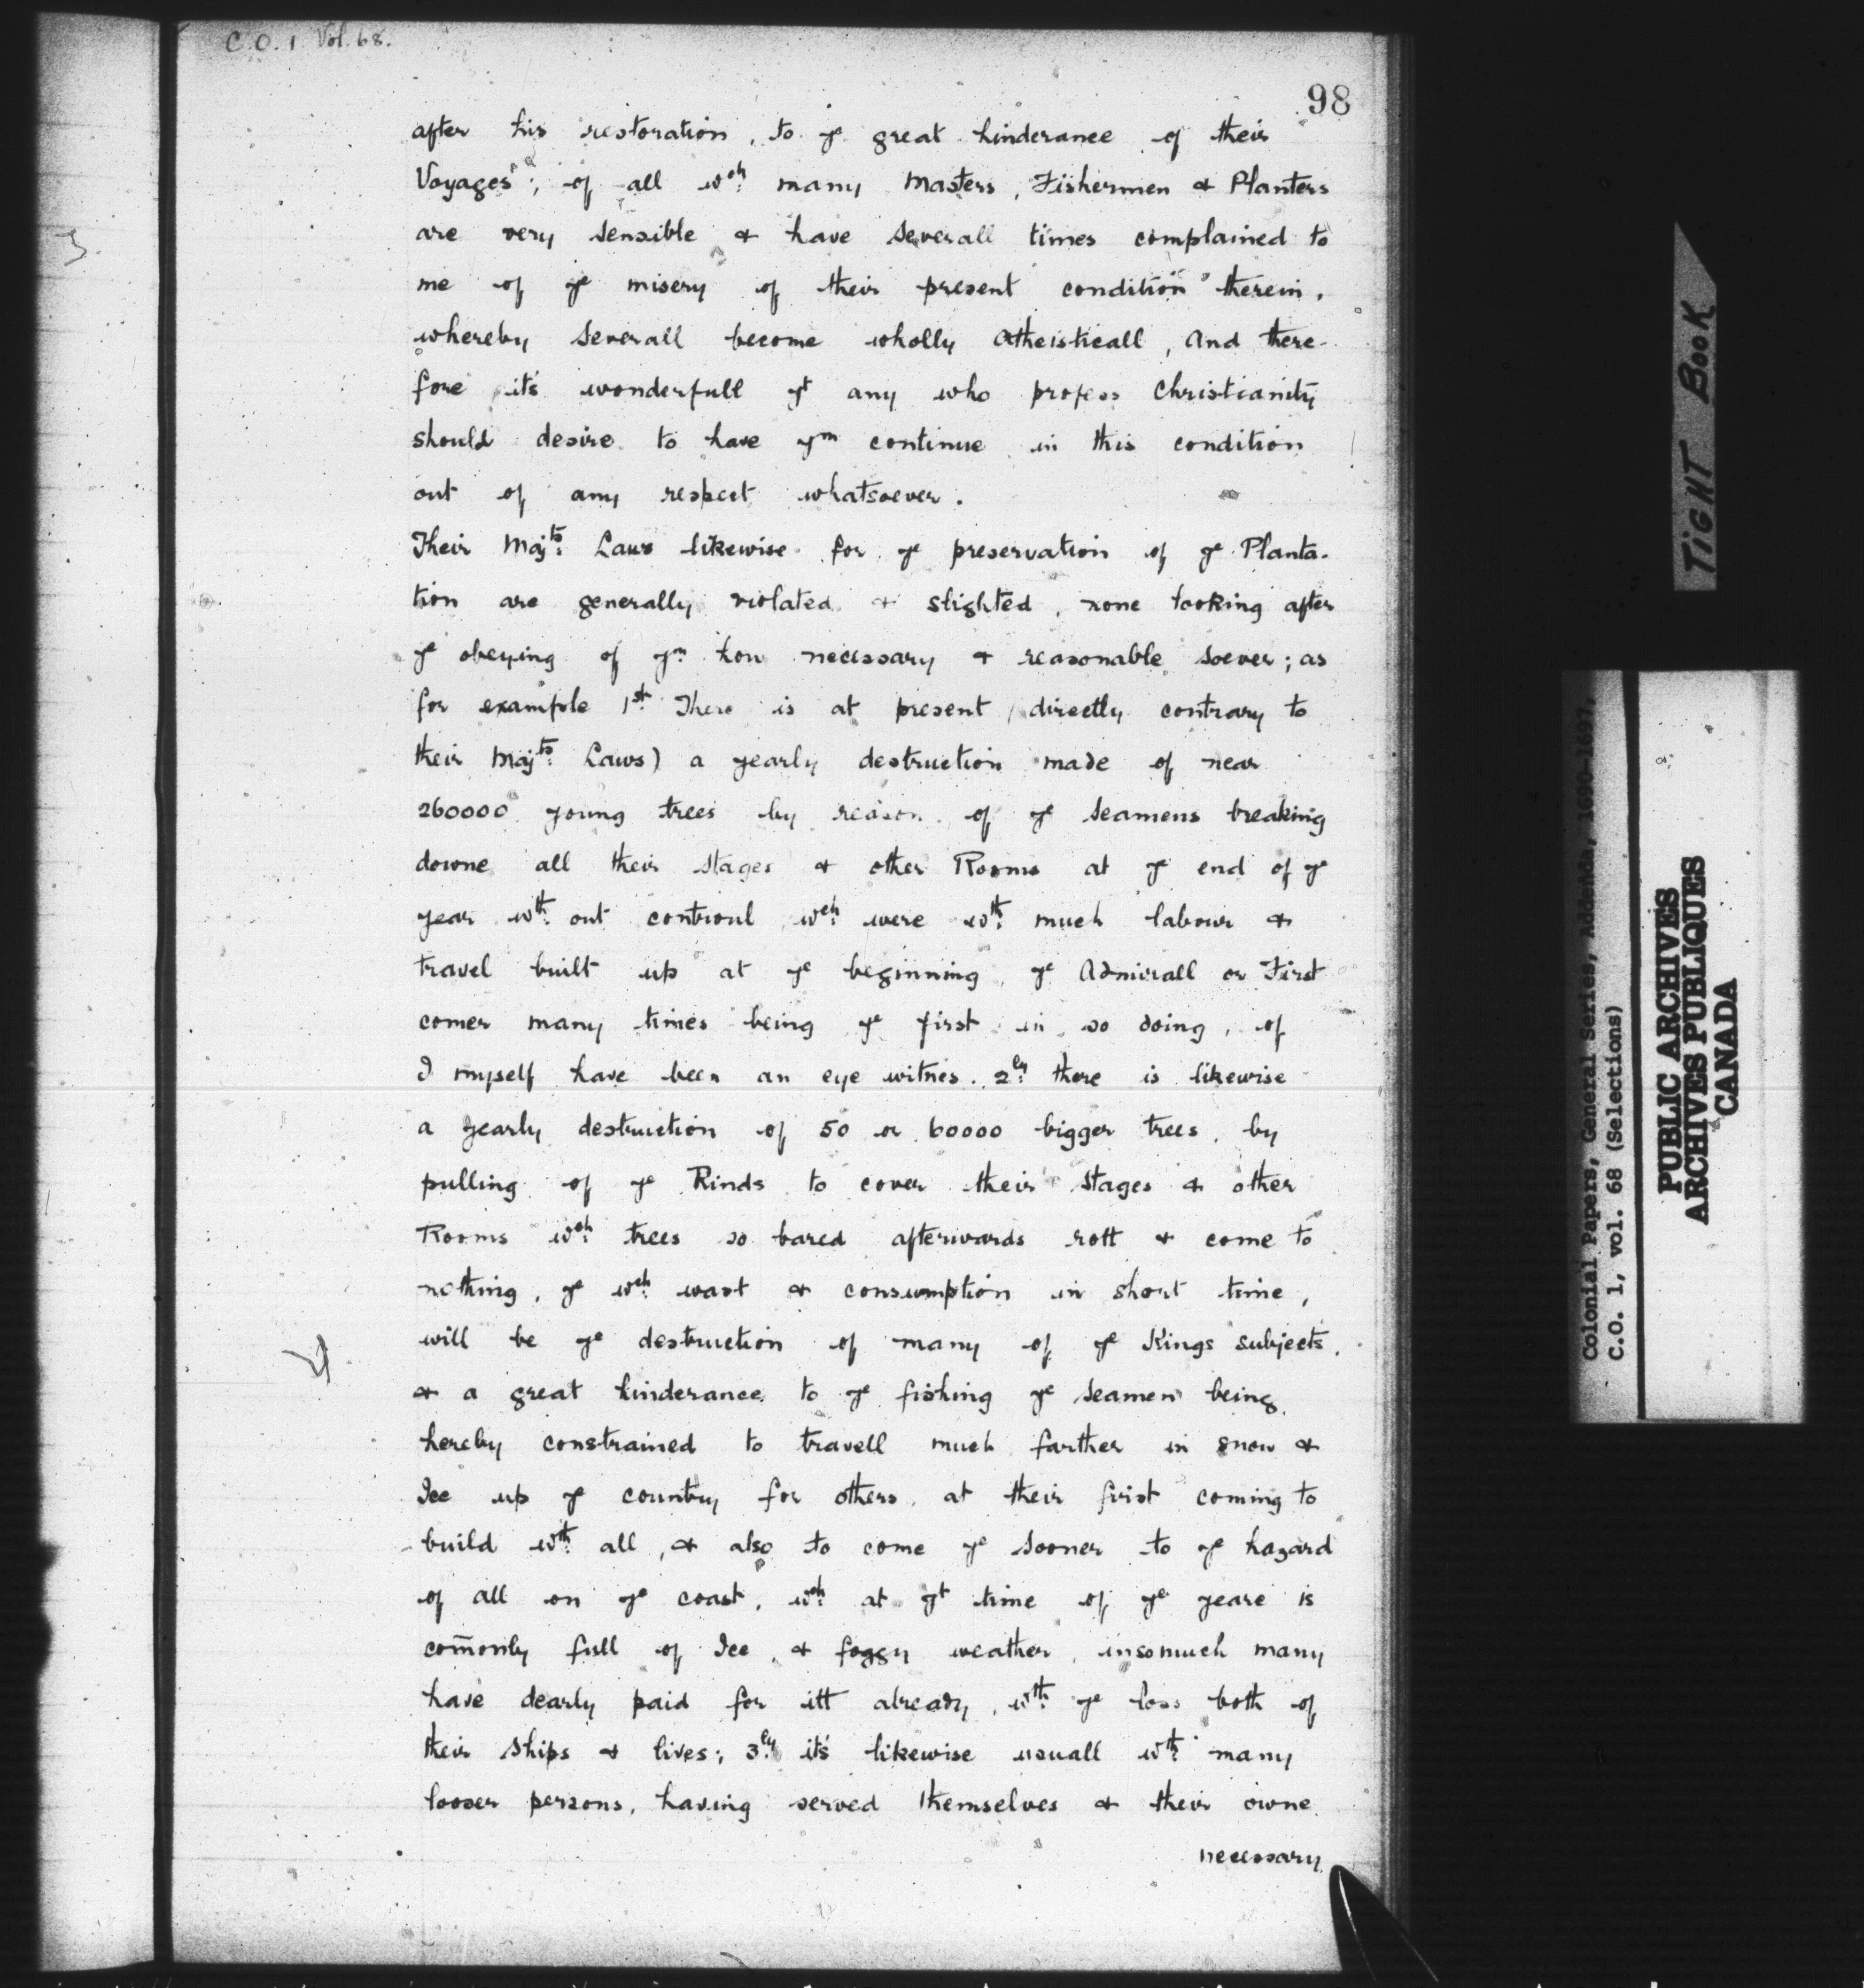 C.O. 1 Vol. 68.
98
after his restoration, to ye great hinderance of their
Voyages; of all wch many Masters, Fishermen & Planters
are very sensible & have severall times complained to
me of ye misery of their present condition therein,
whereby severall become wholly Atheisticall, And there-
fore it's wonderfull yt any who profess Christianity
should desire to have ym continue in this condition
out of any respect whatsoever.
Their Majts Laws likewise for ye preservation of ye Planta-
tion are generally violated & slighted, none looking after
ye obeying of ym how necessary & reasonable soever; as
for example 1st There is at present (directly contrary to
their Majts Laws) a yearly destruction made of near
260000 young trees by reason of ye seamens breaking
downe all their stages & other Rooms at ye end of ye
year wth out controul wch were wth much labour &
travel built up at ye beginning, ye Admirall or First
comer many times being ye first in so doing, of
I myself have been an eye witnes. 2ly there is likewise
a yearly destruction of 50 or 60000 bigger trees, by
pulling of ye Rinds to cover their stages & other
Rooms wch trees so bared afterwards rott & come to
nothing, ye wch wast & consumption in short time,
will be ye destruction of many of ye Kings subjects,
& a great hinderance to ye fishing ye seamen being
hereby constrained to travell much farther in snow &
Ice up ye country for others, at their first coming to
build wth all, & also to come ye sooner to ye hazard
of all on ye coast, wch at yt time of ye yeare is
com̄only full of Ice, & foggy weather, insomuch many
have dearly paid for itt already, wth ye loss both of
their ships & lives; 3ly it's likewise usuall wth many
looser persons, having served themselves & their owne
necessary
TIGHT BOOK
Colonial Papers, General Series, Addenda, 1690-1697,
C.O. 1, vol. 68 (Selections)
PUBLIC ARCHIVES
ARCHIVES PUBLIQUES
CANADA